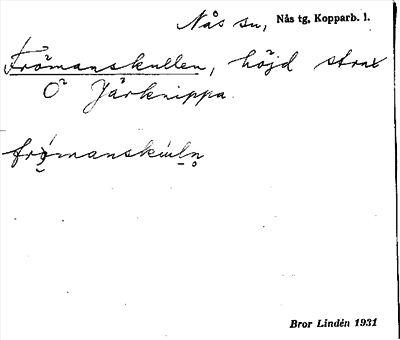 Nås sn, Nås tg, Kopparb. l.
Frömanskullen, höjd strax
Ö Järknippa.
frömanskúuln
Bror Lindén 1931